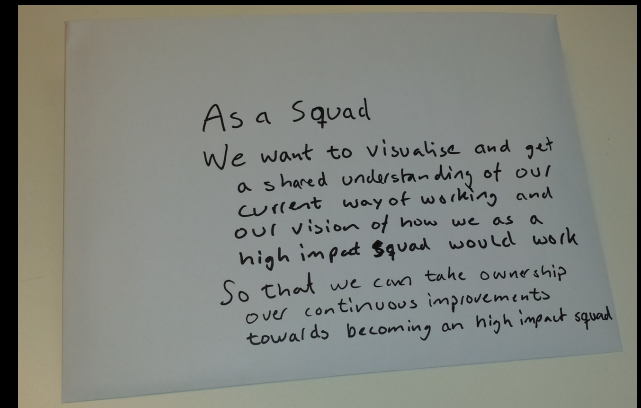 As a Squad
We want to visualise and get
a shared understanding of our
current way of working and
our vision of how we as a
high impact squad would work
So that we can take ownership
over continuous improvements
towards becoming an high impact squad